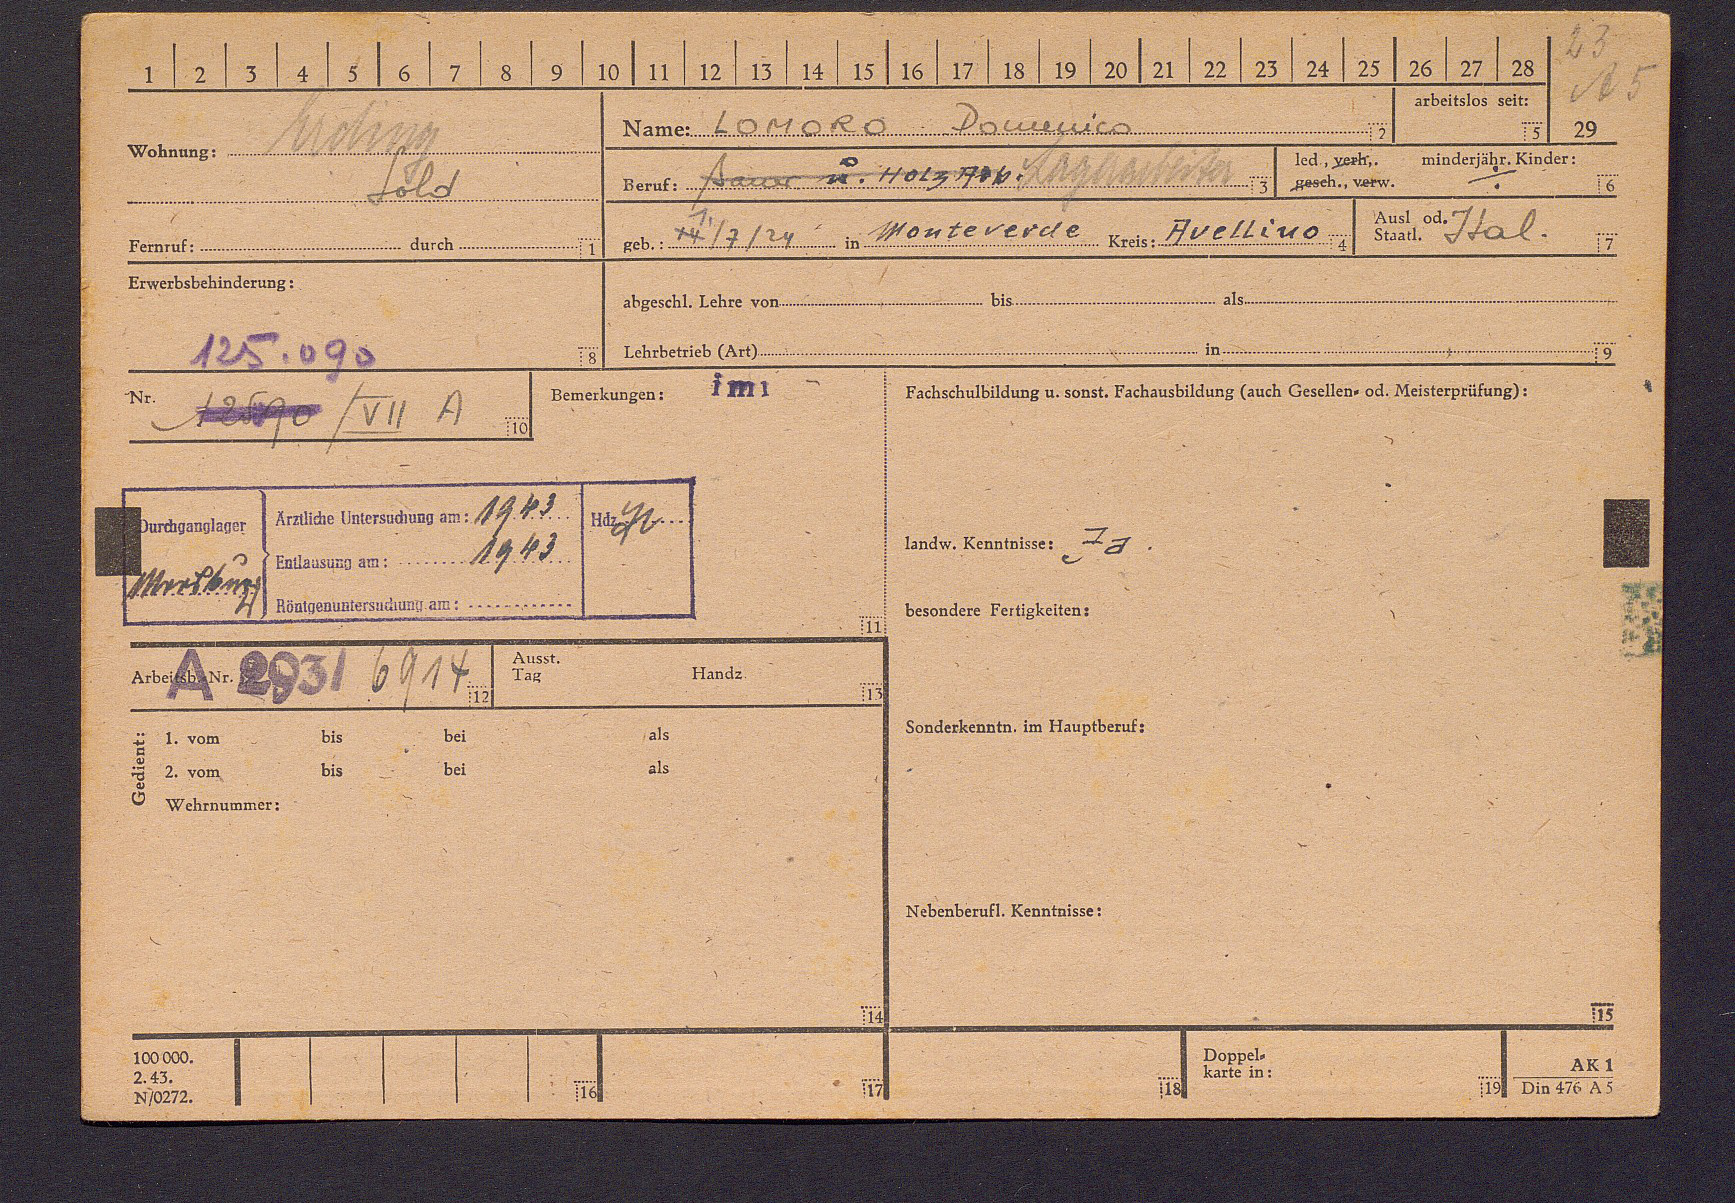 1 2 3 4 5 6 7 8 9 10 11 12 13 14 15 16 17 18 19 20 21 22 23 24 25 26 27 28
23
A 5
29
Wohnung: Erding
Söld
Fernruf: durch 1
Name: LOMORO Domenico 2
arbeitslos seit: 5
Beruf: Bauer u. Holz Arb. Lagerarbeiter 3
led., verh., gesch., verw.
minderjähr. Kinder: 6
geb.: 1./7/24 in Monteverde Kreis: Avellino 4
Ausl od. Staatl. Ital. 7
Erwerbsbehinderung:
125.090 8
abgeschl. Lehre von bis als
Lehrbetrieb (Art) in 9
Nr. /VII A 10
Bemerkungen:
Fachschulbildung u. sonst. Fachausbildung (auch Gesellen- od. Meisterprüfung):
Durchganglager
Ärztliche Untersuchung am: 1943
Entlausung am: 1943
Röntgenuntersuchung am:
Hdz.
11
landw. Kenntnisse: Ja.
besondere Fertigkeiten:
Arbeitsb.-Nr. A 293/ 6914 12
Ausst. Tag Handz 13
Sonderkenntn. im Hauptberuf:
Gedient:
1. vom bis bei als
2. vom bis bei als
Wehrnummer:
Nebenberufl. Kenntnisse:
14
15
100 000.
2. 43.
N/0272.
16
17
18
Doppel-
karte in:
19
AK 1
Din 476 A 5